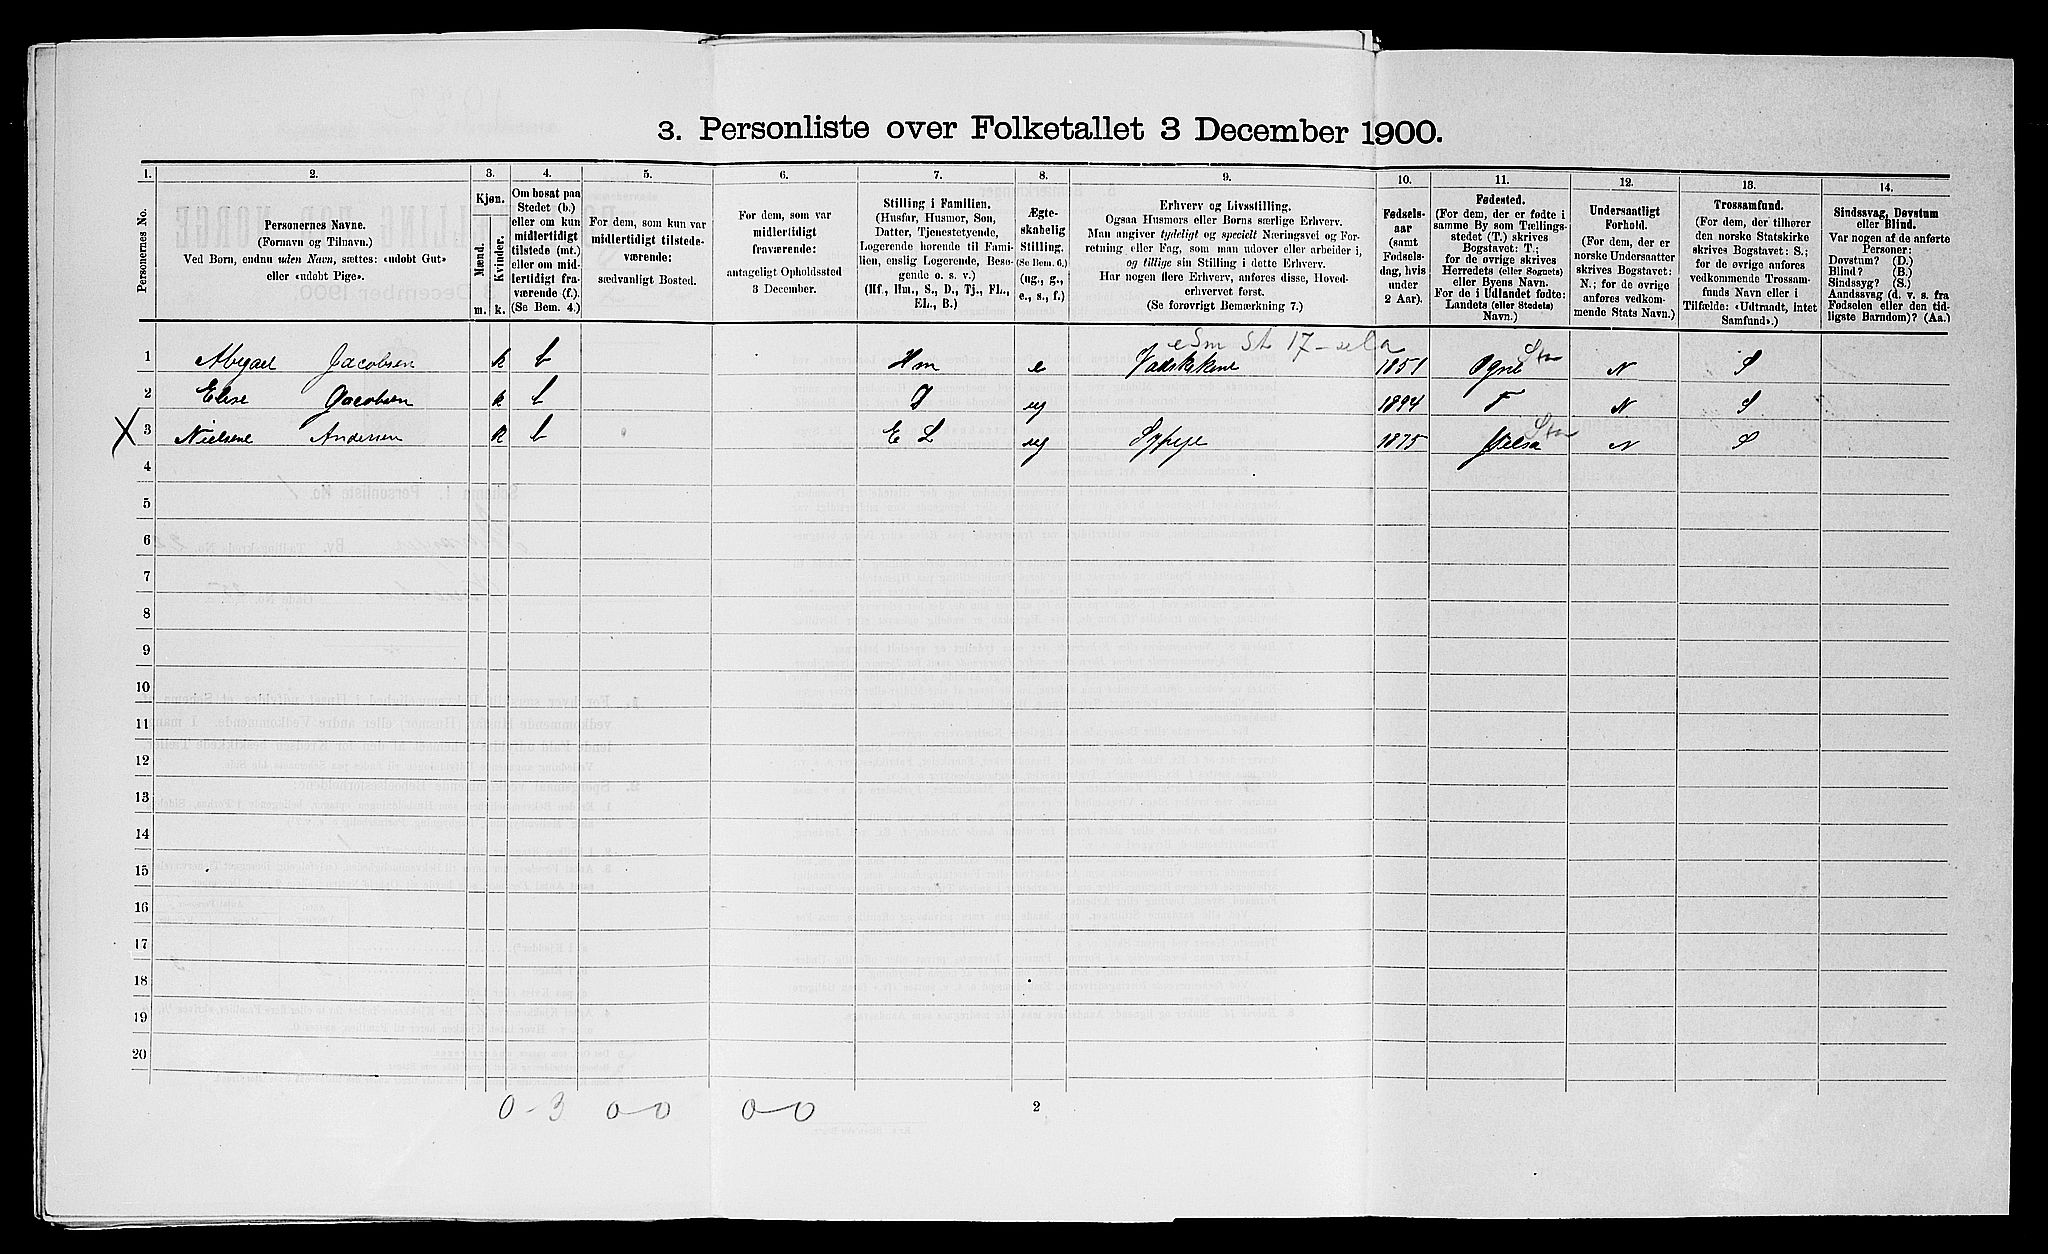 3. Personliste over Folketallet 3 December 1900.
1. 2. 3. 4. 5. 6. 7. 8. 9. 10. 11. 12. 13. 14.
Personernes No.
Personernes Navne.
(Fornavn og Tilnavn.)
Ved Børn, endnu uden Navn, sættes: «udøbt Gut»
eller «udøbt Pige».
Kjøn.
Mænd.
Kvinder.
m. k.
Om bosat paa
Stedet (b.)
eller om kun
midlertidigt
tilstede (mt.)
eller om mid-
lertidigt fra-
værende (f.).
(Se Bem. 4.)
For dem, som kun var
midlertidigt tilstede-
værende:
sædvanligt Bosted.
For dem, som var
midlertidigt
fraværende:
antageligt Opholdssted
3 December.
Stilling i Familien.
(Husfar, Husmor, Søn,
Datter, Tjenestetyende,
Logerende hørende til Fami-
lien, enslig Logerende, Besø-
gende o. s. v.)
(Hf., Hm., S., D., Tj., FL.,
EL., B.)
Ægte-
skabelig
Stilling.
(Se Bem. 6.)
(ug., g.,
e., s., f.)
Erhverv og Livsstilling.
Ogsaa Husmors eller Børns særlige Erhverv.
Man angiver tydeligt og specielt Næringsvei og For-
retning eller Fag, som man udøver eller arbeider i,
og tillige sin Stilling i dette Erhverv.
Har nogen flere Erhverv, anføres disse, Hoved-
erhvervet først.
(Se forøvrigt Bemærkning 7.)
Fødsels-
aar
(samt
Fødsels-
dag, hvis
under
2 Aar).
Fødested.
(For dem, der er fødte i
samme By som Tællings-
stedet (T.) skrives
Bogstavet: T.;
for de øvrige skrives
Herredets (eller Sognets)
eller Byens Navn.
For de i Udlandet fødte:
Landets (eller Stedets)
Navn.)
Undersaatligt
Forhold.
(For dem, der er
norske Undersaatter
skrives Bogstavet:
N.; for de øvrige
anføres vedkom-
mende Stats Navn.)
Trossamfund.
(For dem, der tilhører
den norske Statskirke
skrives Bogstavet: S.;
for de øvrige anføres
vedkommende Trossam-
funds Navn eller i
Tilfælde: «Udtraadt, intet
Samfund».)
Sindssvag, Døvstum
eller Blind.
Var nogen af de anførte
Personer:
Døvstum? (D.)
Blind? (B.)
Sindssyg? (S.)
Aandssvag (d. v. s. fra
Fødselen eller den tid-
ligste Barndom)? (Aa.)
1 Abigael Jacobsen k b Hm e 1851 Ogne N S
2 Elise Jacobsen k b ug 1894 T N S
X 3 Nielsene Andersen k b E L ug Sypige 1875 Jelsa N S
4
5
6
7
8
9
10
11
12
13
14
15
16
17
18
19
20
0-3 0-0 0-0
2